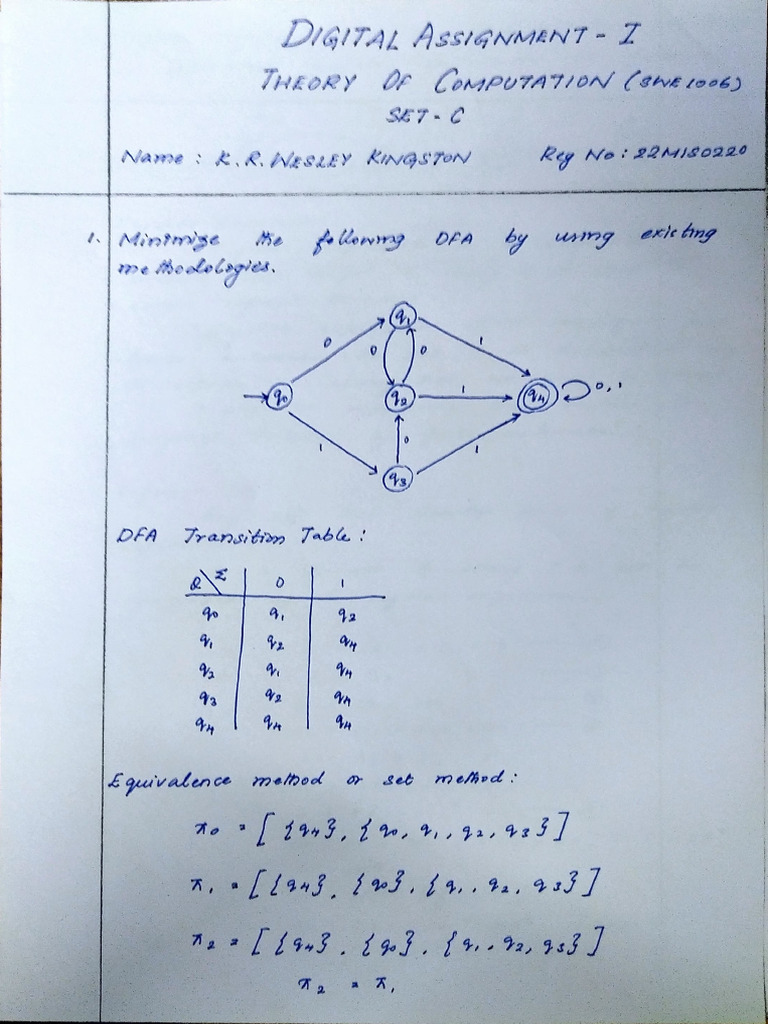 DIGITAL ASSIGNMENT - I
THEORY OF COMPUTATION (SWE1006)
SET - C
Name : K. R. WESLEY KINGSTON Reg No : 22MIS0220
1. Minimize the following DFA by using existing
methodologies.
q1
0 0 0 1
q0 q2 1 q4 0, 1
1 0 1
q3
DFA Transition Table :
Q \ Σ 0 1
q0 q1 q3
q1 q2 q4
q2 q1 q4
q3 q2 q4
q4 q4 q4
Equivalence method or set method :
π0 = [ {q4}, {q0, q1, q2, q3} ]
π1 = [ {q4}, {q0}, {q1, q2, q3} ]
π2 = [ {q4}, {q0}, {q1, q2, q3} ]
π2 = π1